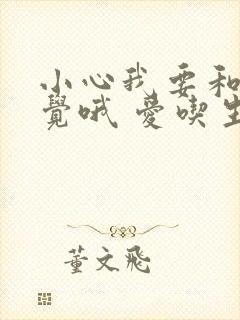 小心我要和
覺哦 愛喫生
董文飛